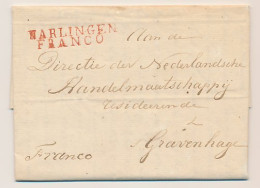 HARLINGEN
FRANCO
Aan de
Directie der Nederlandsche
Handelmaatschappij
resideerende
te
s'Gravenhage
Franco